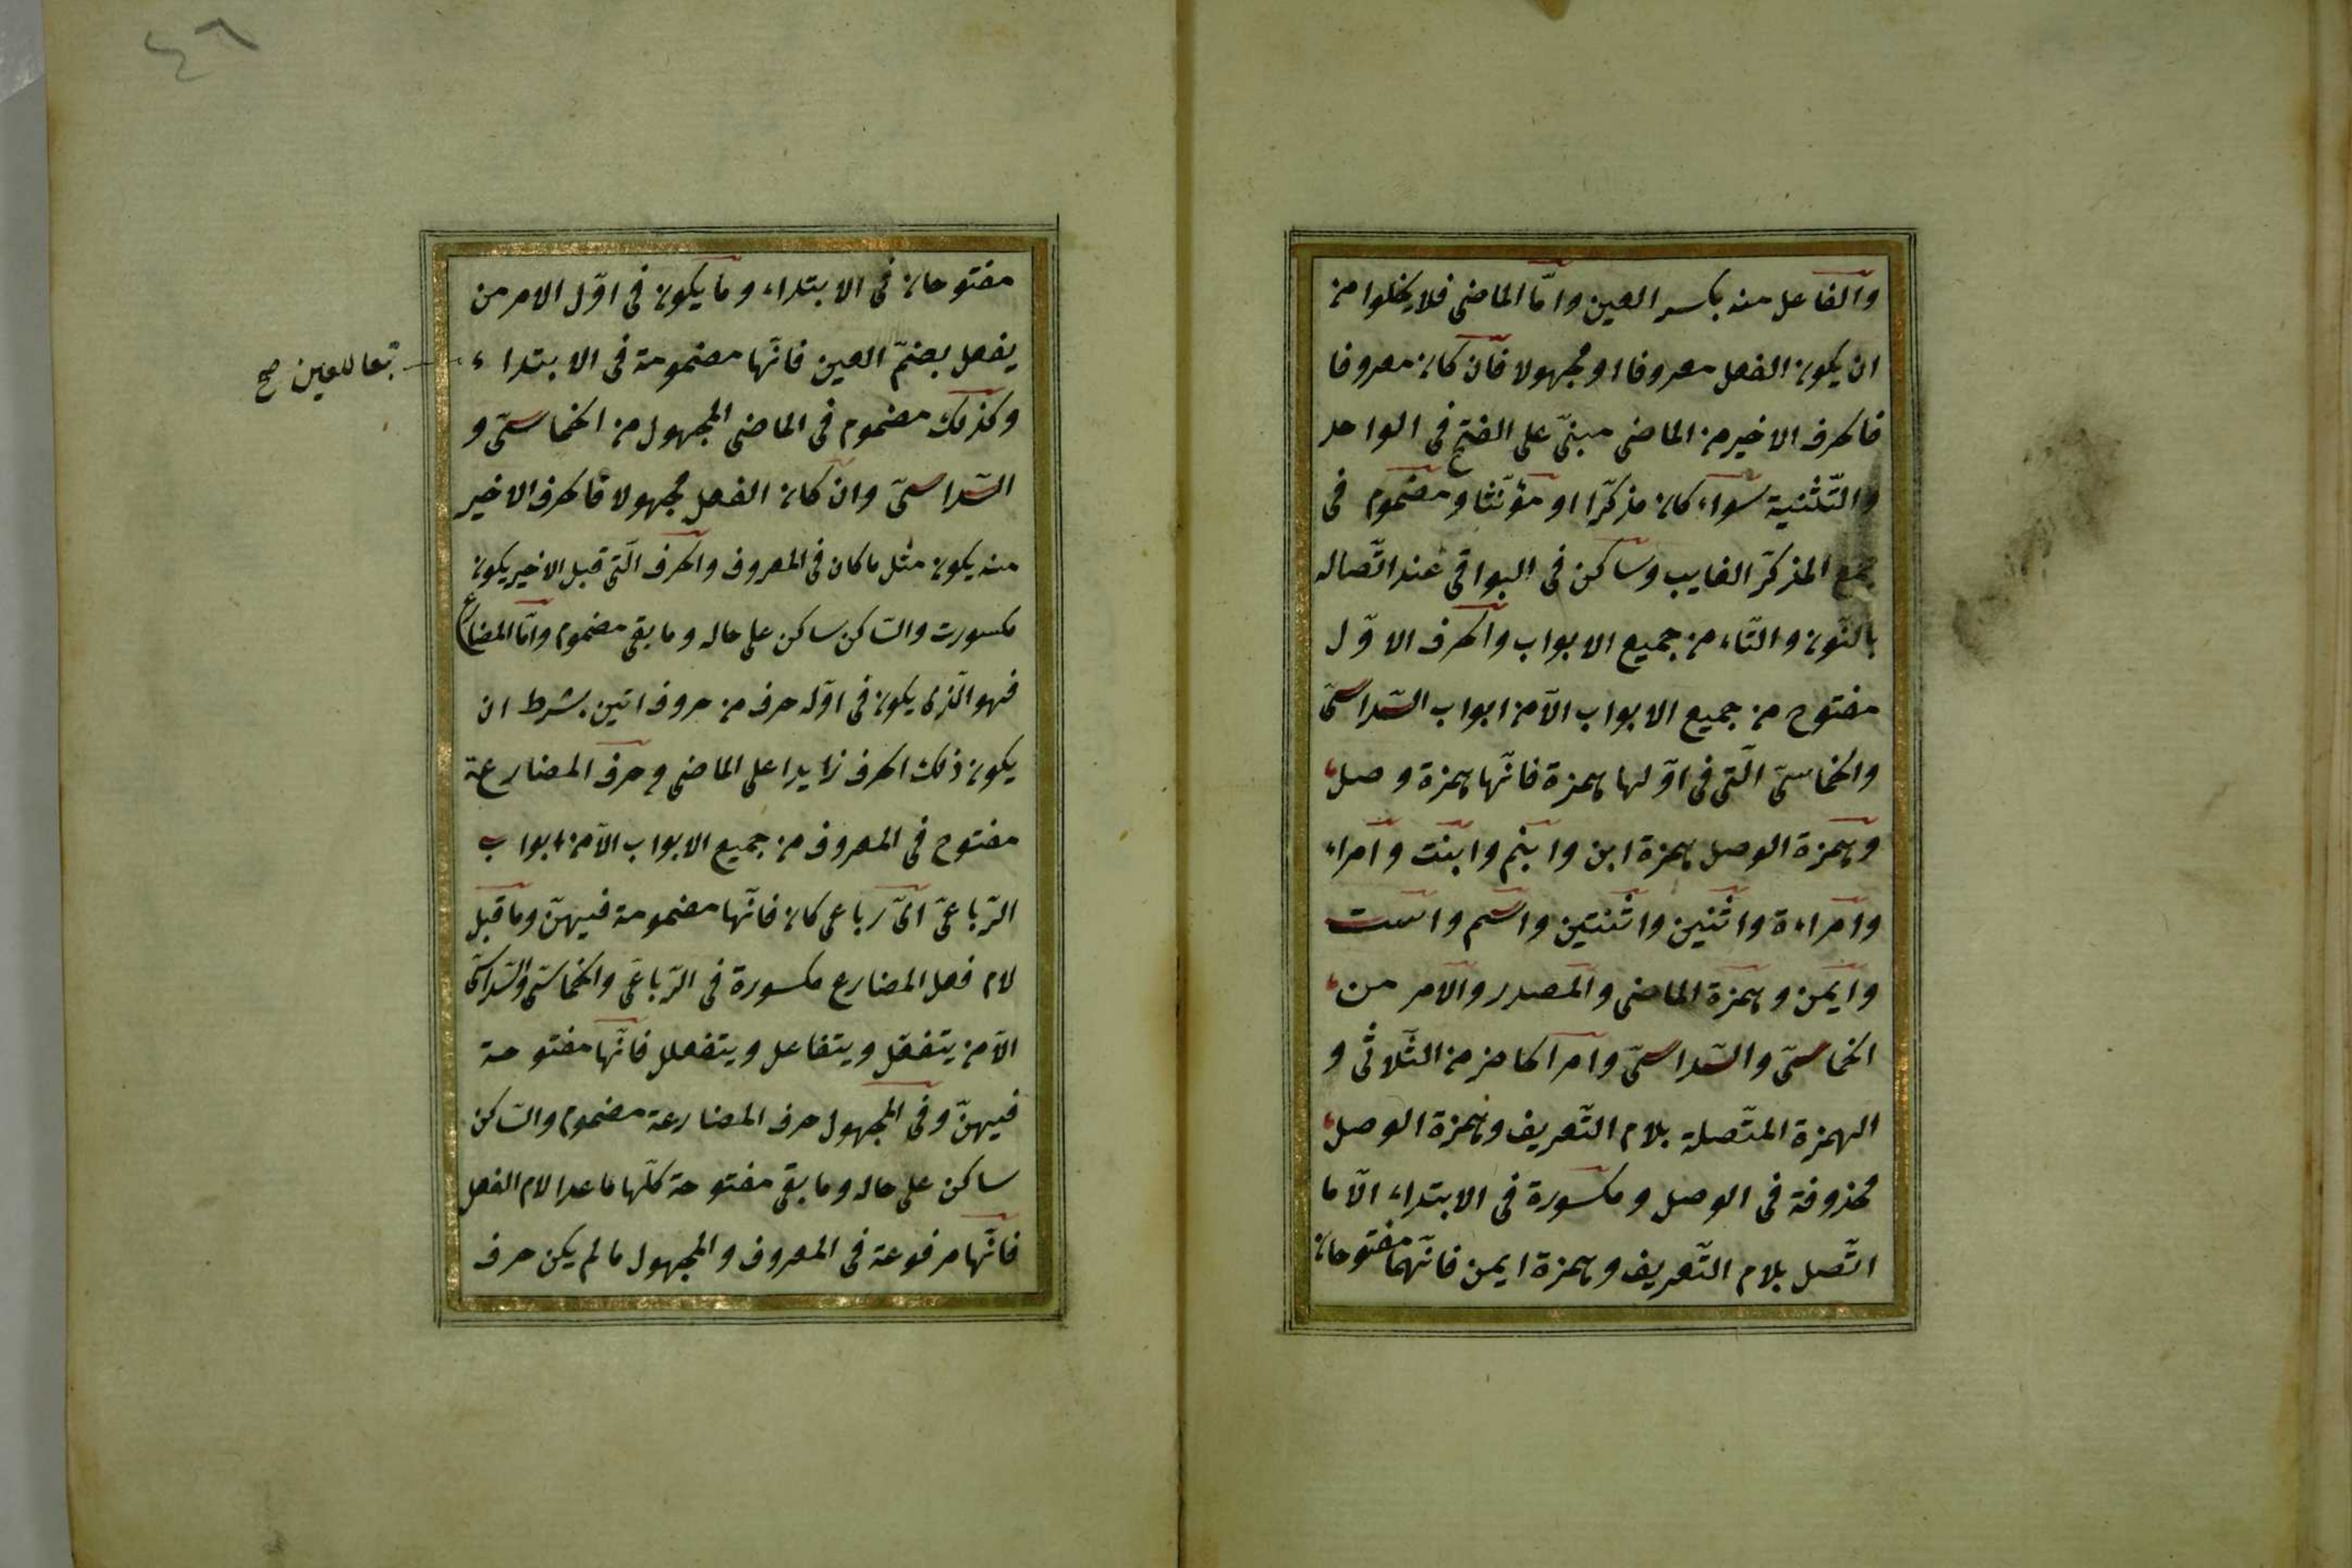 والفاعل منه بكسر العين وامّا الماضى فلا يخلوا من
ان يكون الفعل معروفا او مجهولا فان كان معروفا
فالحرف الاخير من الماضى مبنىّ على الفتح فى الواحد
والتّثنية سواء كان مذكّرا او مؤنّثا ومضموم فى
جمع المذكّر الغايب وساكن فى البواقى عند اتّصاله
بالنّون والتّاء من جميع الابواب والحرف الاوّل
مفتوح من جميع الابواب الّا من ابواب السّداسىّ
والخماسىّ الّتى فى اوّلها همزة فانّها همزة وصل
وهمزة الوصل همزة ابن وابنم وابنت وامراء
وامراءة واثنين واثنتين واسم واست
وايمن وهمزة الماضى والمصدر والامر من
الخماسىّ والسّداسىّ وامر الحاضر من الثّلاثى و
الهمزة المتّصلة بلام التّعريف وهمزة الوصل
محذوفة فى الوصل ومكسورة فى الابتداء الّا ما
اتّصل بلام التّعريف وهمزة ايمن فانّهما مفتوحان
٤٦
مفتوحان فى الابتداء وما يكون فى اوّل الامر من
يفعل بضمّ العين فانّها مضمومة فى الابتداء
تبعا للعين صح
وكذلك مضموم فى الماضى المجهول من الخماسىّ و
السّداسىّ وان كان الفعل مجهولا فالحرف الاخير
منه يكون مثل ما كان فى المعروف والحرف الّتى قبل الاخير يكون
مكسورت والسّاكن ساكن على حاله وما بقى مضموم وامّا المضارع
فهو الّذى يكون فى اوّله حرف من حروف اتين بشرط ان
يكون ذلك الحرف زايدا على الماضى وحرف المضارعة
مفتوح فى المعروف من جميع الابواب الّا من ابواب
الرّباعىّ اىّ رباعى كان فانّها مضمومة فيهنّ وما قبل
لام فعل المضارع مكسورة فى الرّباعىّ والخماسىّ والسّداسىّ
الّا من يتفعّل ويتفاعل ويتفعلل فانّها مفتوحة
فيهنّ وفى المجهول حرف المضارعة مضموم والسّاكن
ساكن على حاله وما بقى مفتوحة كلّها ما عدا لام الفعل
فانّها مرفوعة فى المعروف والمجهول ما لم يكن حرف